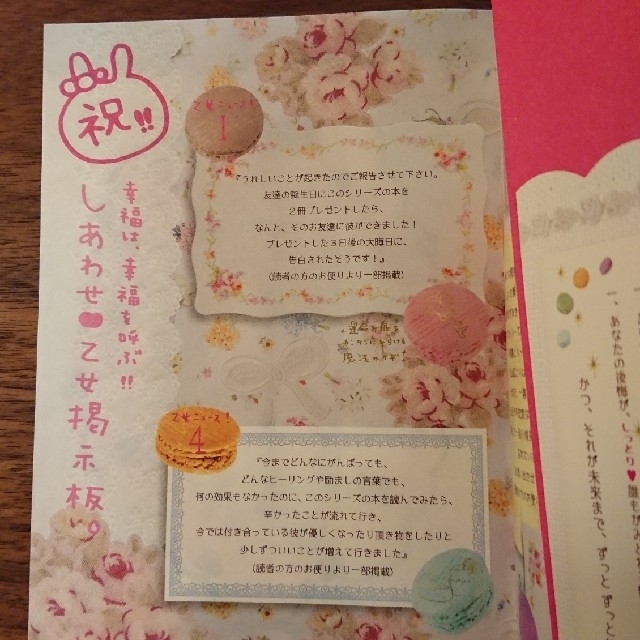 祝!!
幸福は、幸福を呼ぶ!!
しあわせ♥乙女掲示板。
乙女ニュース!
1
『うれしいことが起きたのでご報告させて下さい。
友達の誕生日にこのシリーズの本を
2冊プレゼントしたら、
なんと、そのお友達に彼ができました!
プレゼントした3日後の大晦日に、
告白されたそうです!』
(読者の方のお便りより一部掲載)
乙女ニュース!
4
『今までどんなにがんばっても、
どんなヒーリングや励ましの言葉でも、
何の効果もなかったのに、このシリーズの本を読んでみたら、
辛かったことが流れて行き、
今では付き合っている彼が優しくなったり頂き物をしたりと
少しずついいことが増えて行きました』
(読者の方のお便りより一部掲載)
一、あなたの後悔が、しっとり♥
かつ、それが未来まで、ずっとずっと